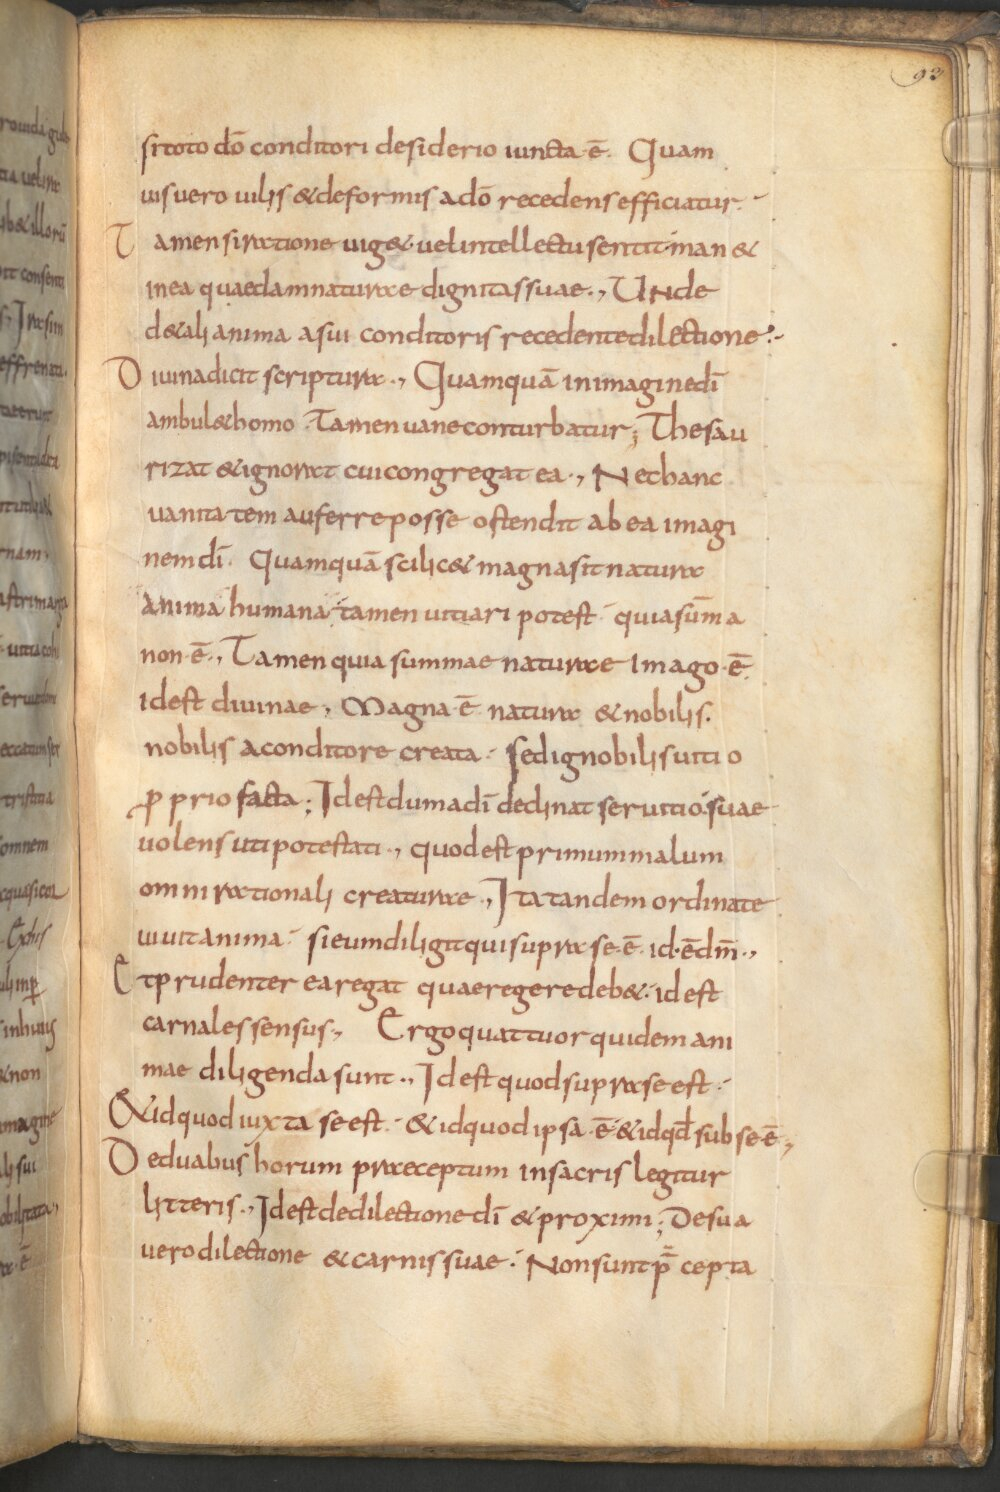 93
si toto dō conditori desiderio iuncta ē. Quam
uis uero uilis & deformis a dō recedens efficiatur.
Tamen si ratione uig& uel intellectu sentit man&
in ea quaedam naturae dignitas suae., Unde
d& ali anima a sui conditoris recedente dilectione:
Diuina dicit scriptura., Quamquā in imagine dī
ambul& homo Tamen uane conturbatur; Thesau
rizat & ignorat cui congregat ea., Nec hanc
uanitatem auferre posse ostendit ab ea imagi
nem dī. Quamquā scilic& magna sit natura
anima humana tamen uitiari potest. quia sūma
non ē., Tamen quia summae naturae imago ē.
id est diuinae, Magna ē natura & nobilis.
nobilis a conditore creata. sed ignobilis uitio
ꝓprio facta; Id est dum a dī declinat seruitio. suae
uolens uti potestati., quod est primum malum
omni rationali creaturae., Ita tandem ordinate
uiuit anima. si eum diligit qui supra se ē. id ē dm̄.,
Et prudenter ea regat quae regere deb&. id est
carnales sensus., Ergo quattuor quidem ani
mae diligenda sunt., Id est quod supra se est.
& id quod iuxta se est. & id quod ipsa ē. & id qđ sub se ē,
De duabus horum praeceptum in sacris legitur
litteris., Id est de dilectione dī & proximi; De sua
uero dilectione & carnis suae. Non sunt p̄cepta